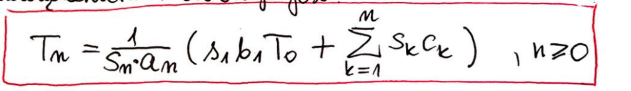 T_n = \frac{1}{s_n \cdot a_n} ( s_1 b_1 T_0 + \sum_{k=1}^{n} s_k c_k ) , n \geqslant 0